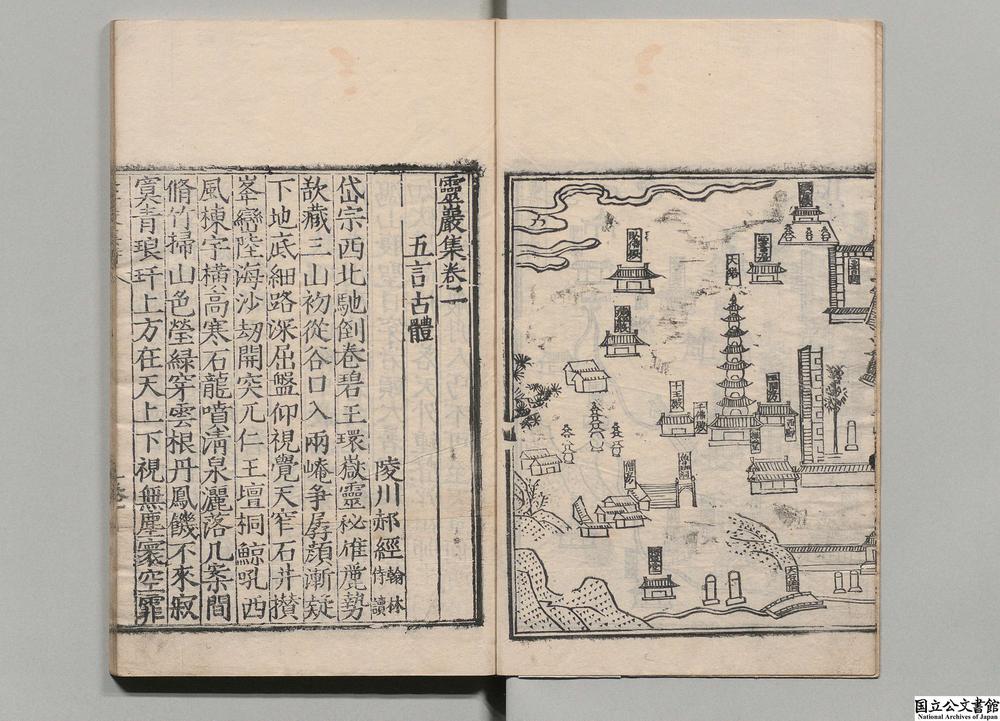 十王殿
千佛殿
靈巖集卷二
五言古體
陵川郝經翰林侍讀
岱宗西北馳倒卷碧王環嶽靈秘雄麗勢
藏三山初從谷口入兩崦爭孱顏漸疑
下地底細路深屈盤仰視覺天窄石井攢
峯巒陸海沙劫開突兀仁王壇桐鯨吼西
風棟宇橫高寒石龍噴清泉灑落几案間
脩竹掃山色瑩綠穿雲根丹鳳饑不來寂
寞青琅玕上方在天上下視無塵寰空霏
国立公文書館
National Archives of Japan